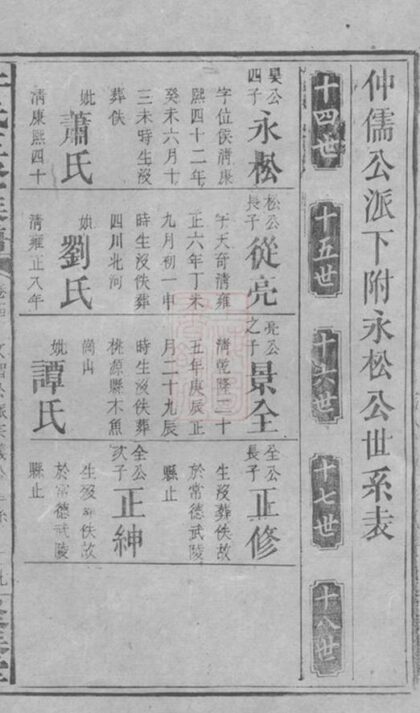 仲儒公派下附永松公世系表
十四世
十五世
十六世
十七世
十八世
昊公
四子
永松
字位侯清康
熙四十二年
癸未六月十
三未時生沒
葬佚
妣
蕭氏
清康熙四十
松公
長子
從亮
字天奇清雍
正六年丁未
九月初一申
時生沒佚葬
四川北河
妣
劉氏
清雍正八年
亮公
之子
景全
清乾隆二十
五年庚辰正
月二十九辰
時生沒佚葬
桃源縣木魚
崗山
妣
譚氏
全公
長子
正修
生沒葬佚故
於常德武陵
縣止
全公
次子
正紳
生沒葬佚故
於常德武陵
縣止